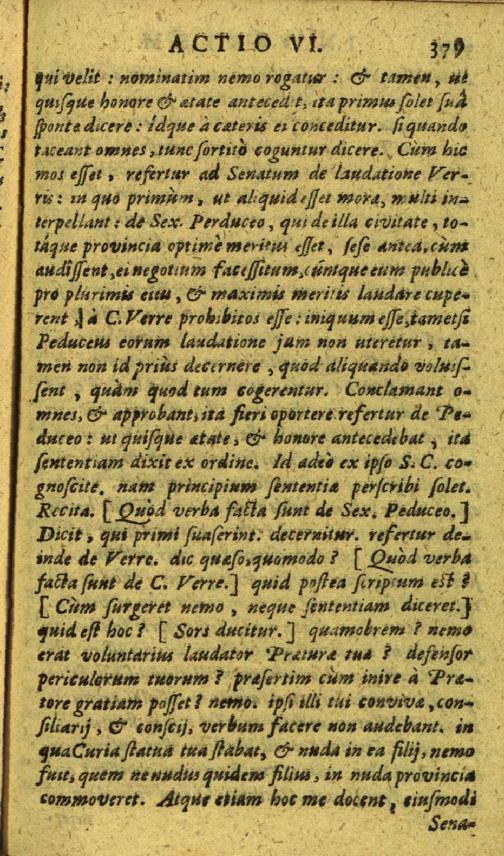 ACTIO VI. 379
qui velit : nominatim nemo rogatur : & tamen, ut
quisque honore & ætate antecedit, ita primus solet suâ
sponte dicere : idque à cæteris ei conceditur. si quando
taceant omnes, tunc sortitò coguntur dicere. Cùm hic
mos esset, refertur ad Senatum de laudatione Ver-
ris : in quo primùm, ut aliquid esset moræ, multi in-
terpellant : de Sex. Perduceo, qui de illa civitate, to-
táque provincia optimè meritus esset, sese anteà, cùm
audîssent, ei negotium facessitum, cùmque eum publicè
pro plurimis eius, & maximis meritis laudare cupe-
rent, à C. Verre prohibitos esse : iniquum esse, tametsi
Peduceus eorum laudatione jam non uteretur, ta-
men non id priùs decernere, quod aliquando voluis-
sent, quàm quod tum cogerentur. Conclamant o-
mnes, & approbant, ita fieri oportere. refertur de Pe-
duceo : ut quisque ætate, & honore antecedebat, ita
sententiam dixit ex ordine. Id adeò ex ipso S. C. co-
gnoscite. nam principium sententiæ perscribi solet.
Recita. [ Quòd verba facta sunt de Sex. Peduceo. ]
Dicit, qui primi suaserint. decernitur. refertur de-
inde de Verre. dic quæso, quomodo ? [ Quòd verba
facta sunt de C. Verre. ] quid postea scriptum est ?
[ Cùm surgeret nemo, neque sententiam diceret. ]
quid est hoc ? [ Sors ducitur. ] quamobrem ? nemo
erat voluntarius laudator Præturæ tuæ ? defensor
periculorum tuorum ? præsertim cùm inire à Præ-
tore gratiam posset ? nemo. ipsi illi tui convivæ, con-
siliarij, & conscij, verbum facere non audebant. in
qua Curia statua tua stabat, & nuda in ea filij, nemo
fuit, quem ne nudus quidem filius, in nuda provincia
commoveret. Atque etiam hoc me docent, eiusmodi
Sena-